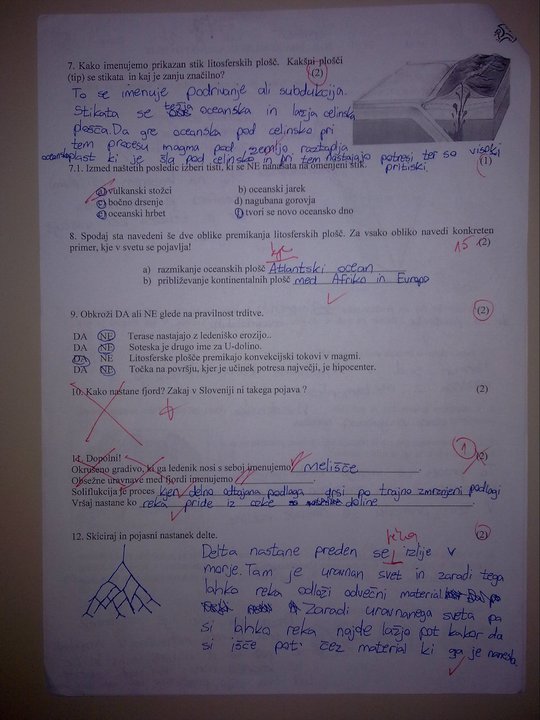 7. Kako imenujemo prikazan stik litosferskih plošč. Kakšni plošči
(tip) se stikata in kaj je zanju značilno? (2)
To se imenuje podrivanje ali subdukcija.
Stikata se težja oceanska in lažja celinska
plošča. Da gre oceanska pod celinsko pri
tem procesu magma pod zemljo raztaplja
oceansko plast ki je šla pod celinsko in pri tem nastajajo potresi ter so visoki
pritiski. (1)
7.1. Izmed naštetih posledic izberi tisti, ki se NE nanašata na omenjeni stik.
a) vulkanski stožci b) oceanski jarek
c) bočno drsenje d) nagubana gorovja
e) oceanski hrbet f) tvori se novo oceansko dno
8. Spodaj sta navedeni še dve obliki premikanja litosferskih plošč. Za vsako obliko navedi konkreten
primer, kje v svetu se pojavlja! 1,5 (2)
a) razmikanje oceanskih plošč Atlantski ocean
b) približevanje kontinentalnih plošč med Afriko in Europo
9. Obkroži DA ali NE glede na pravilnost trditve. (2)
DA NE Terase nastajajo z ledeniško erozijo..
DA NE Soteska je drugo ime za U-dolino.
DA NE Litosferske plošče premikajo konvekcijski tokovi v magmi.
DA NE Točka na površju, kjer je učinek potresa največji, je hipocenter.
10. Kako nastane fjord? Zakaj v Sloveniji ni takega pojava? (2)
11. Dopolni! 1 (2)
Okrušeno gradivo, ki ga ledenik nosi s seboj imenujemo melišče.
Obsežne uravnave med fjordi imenujemo
Soliflukcija je proces kjer delno odtajana podlaga drsi po trajno zmrznjeni podlagi
Vršaj nastane ko reka pride iz ozke doline.
12. Skiciraj in pojasni nastanek delte. (2)
Delta nastane preden se reka izlije v
morje. Tam je uravnan svet in zaradi tega
lahko reka odlaži odvečni material
Zaradi uravnanega sveta pa
si lahko reka najde lažjo pot kakor da
si išče pot čez material ki ga je nanesla.